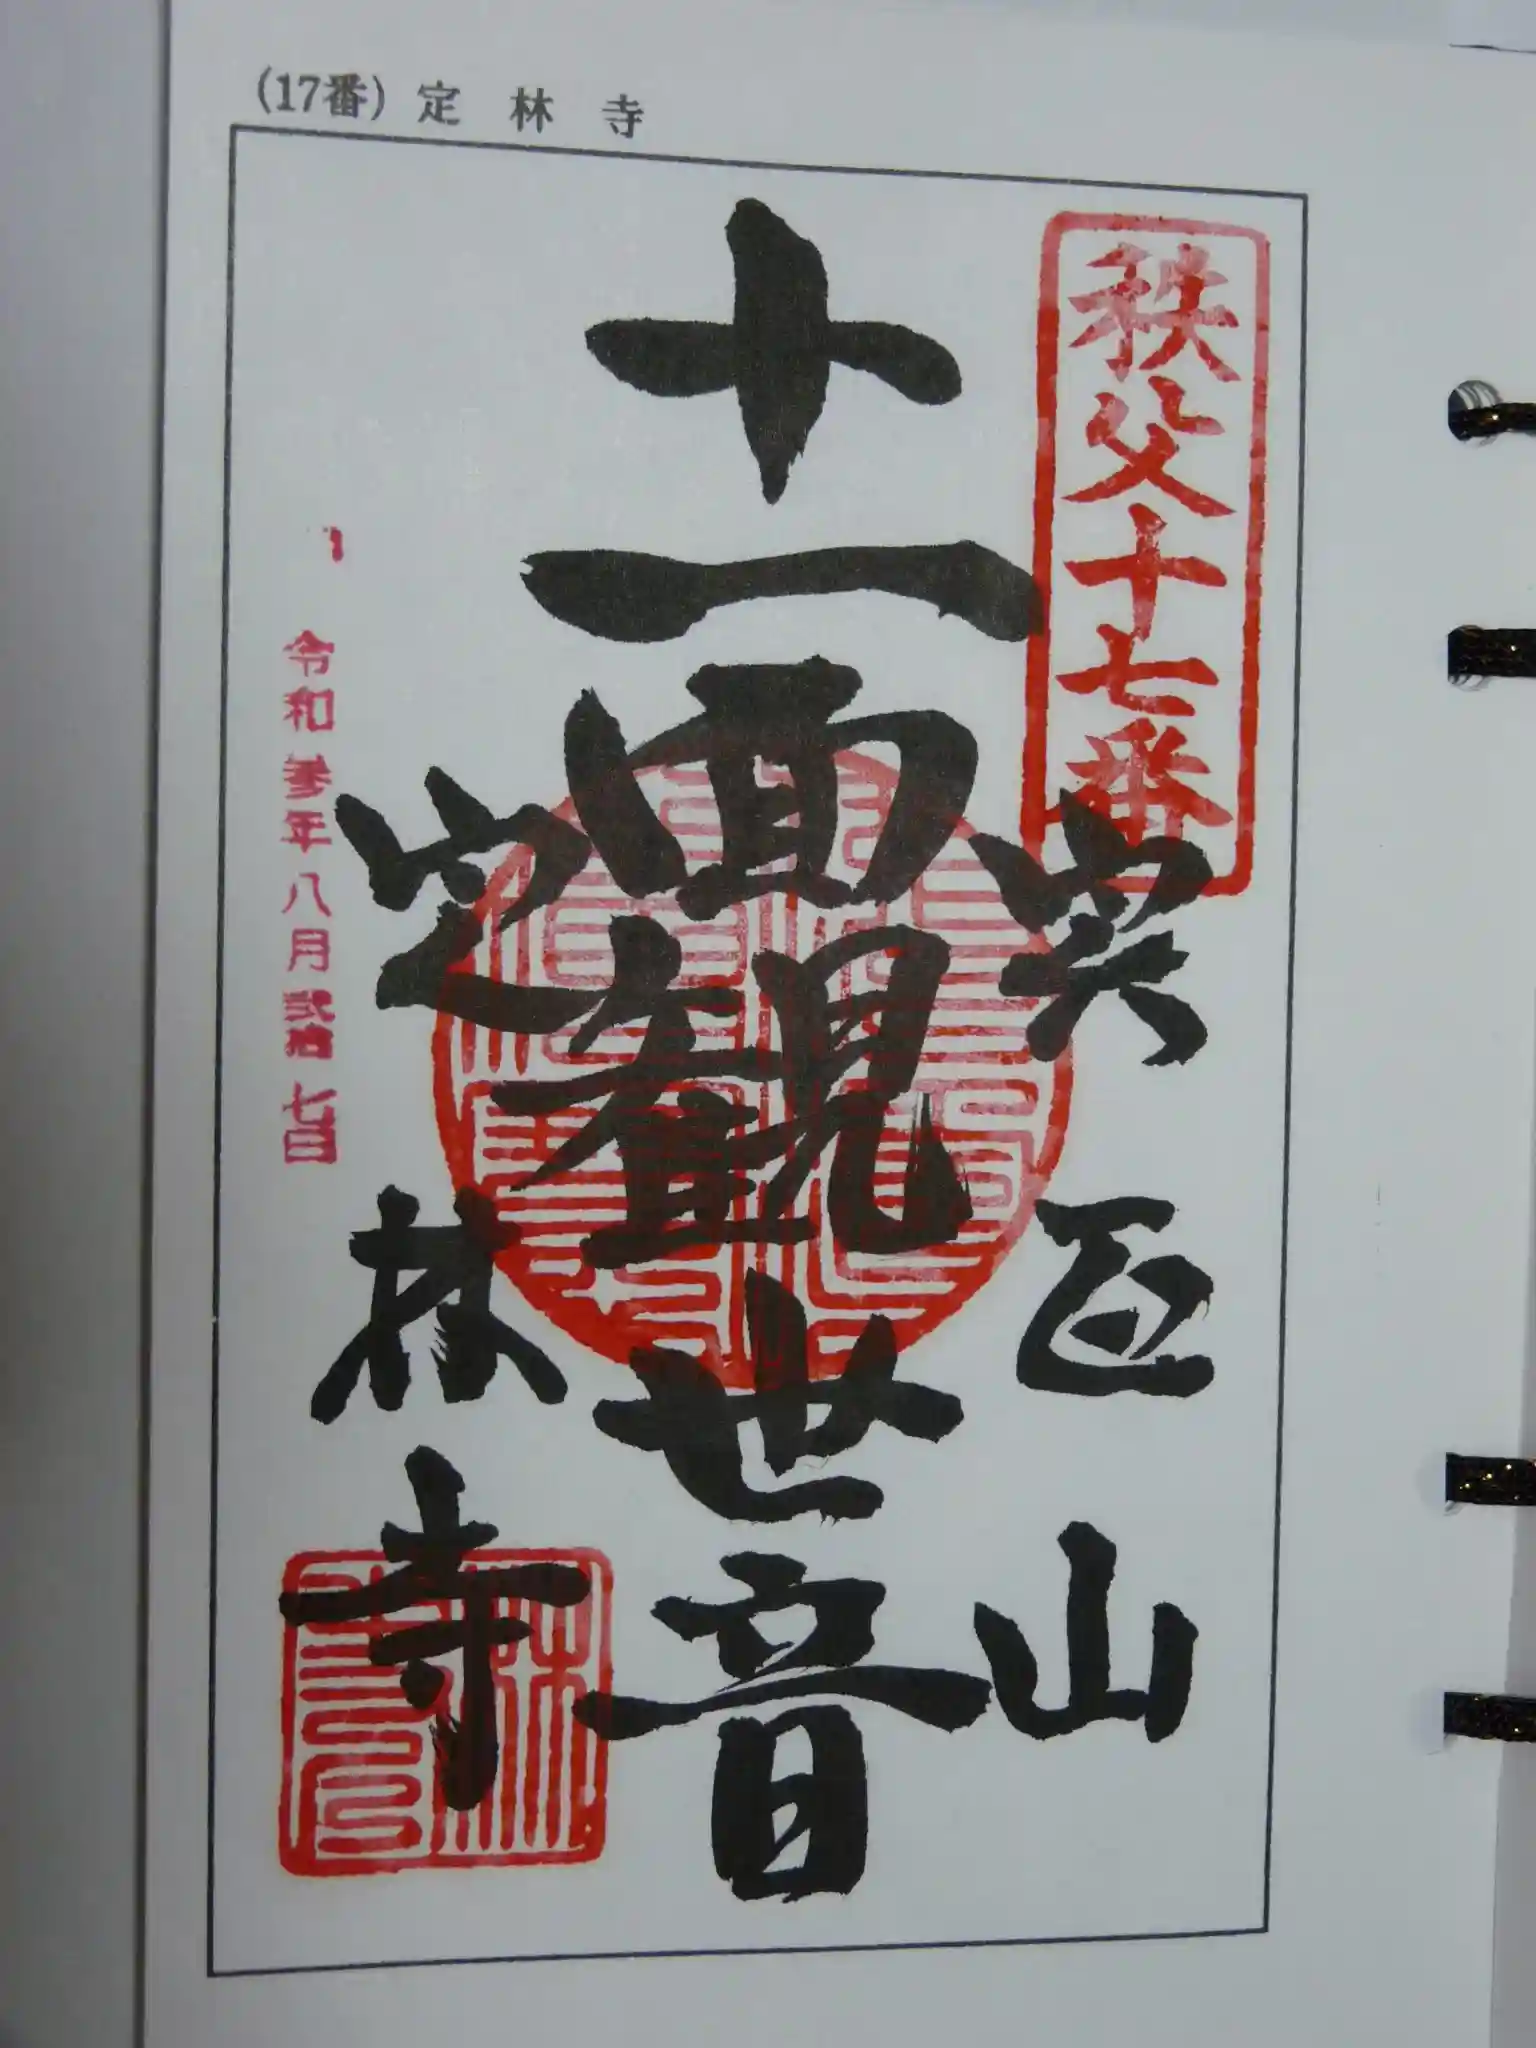 (17番) 定林寺
秩父十七番
実正山
十一面観世音
定林寺
令和参年八月弐拾七日